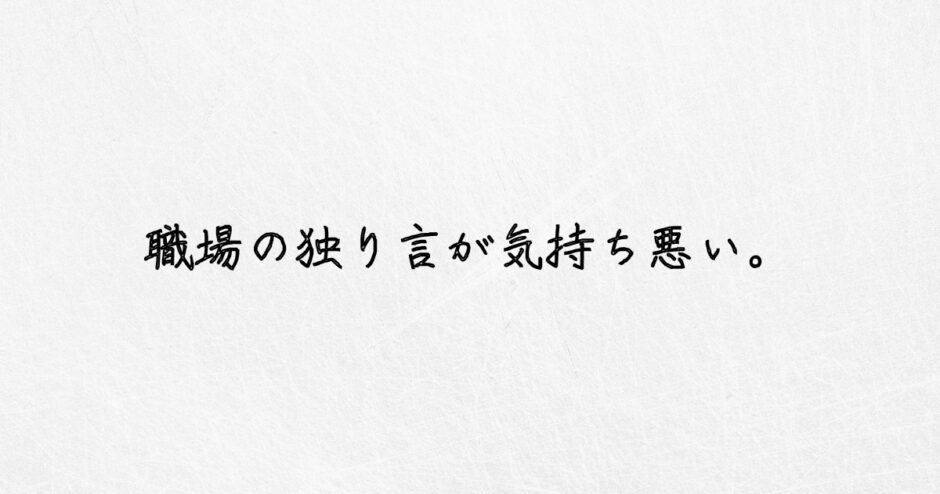 職場の独り言が気持ち悪い。